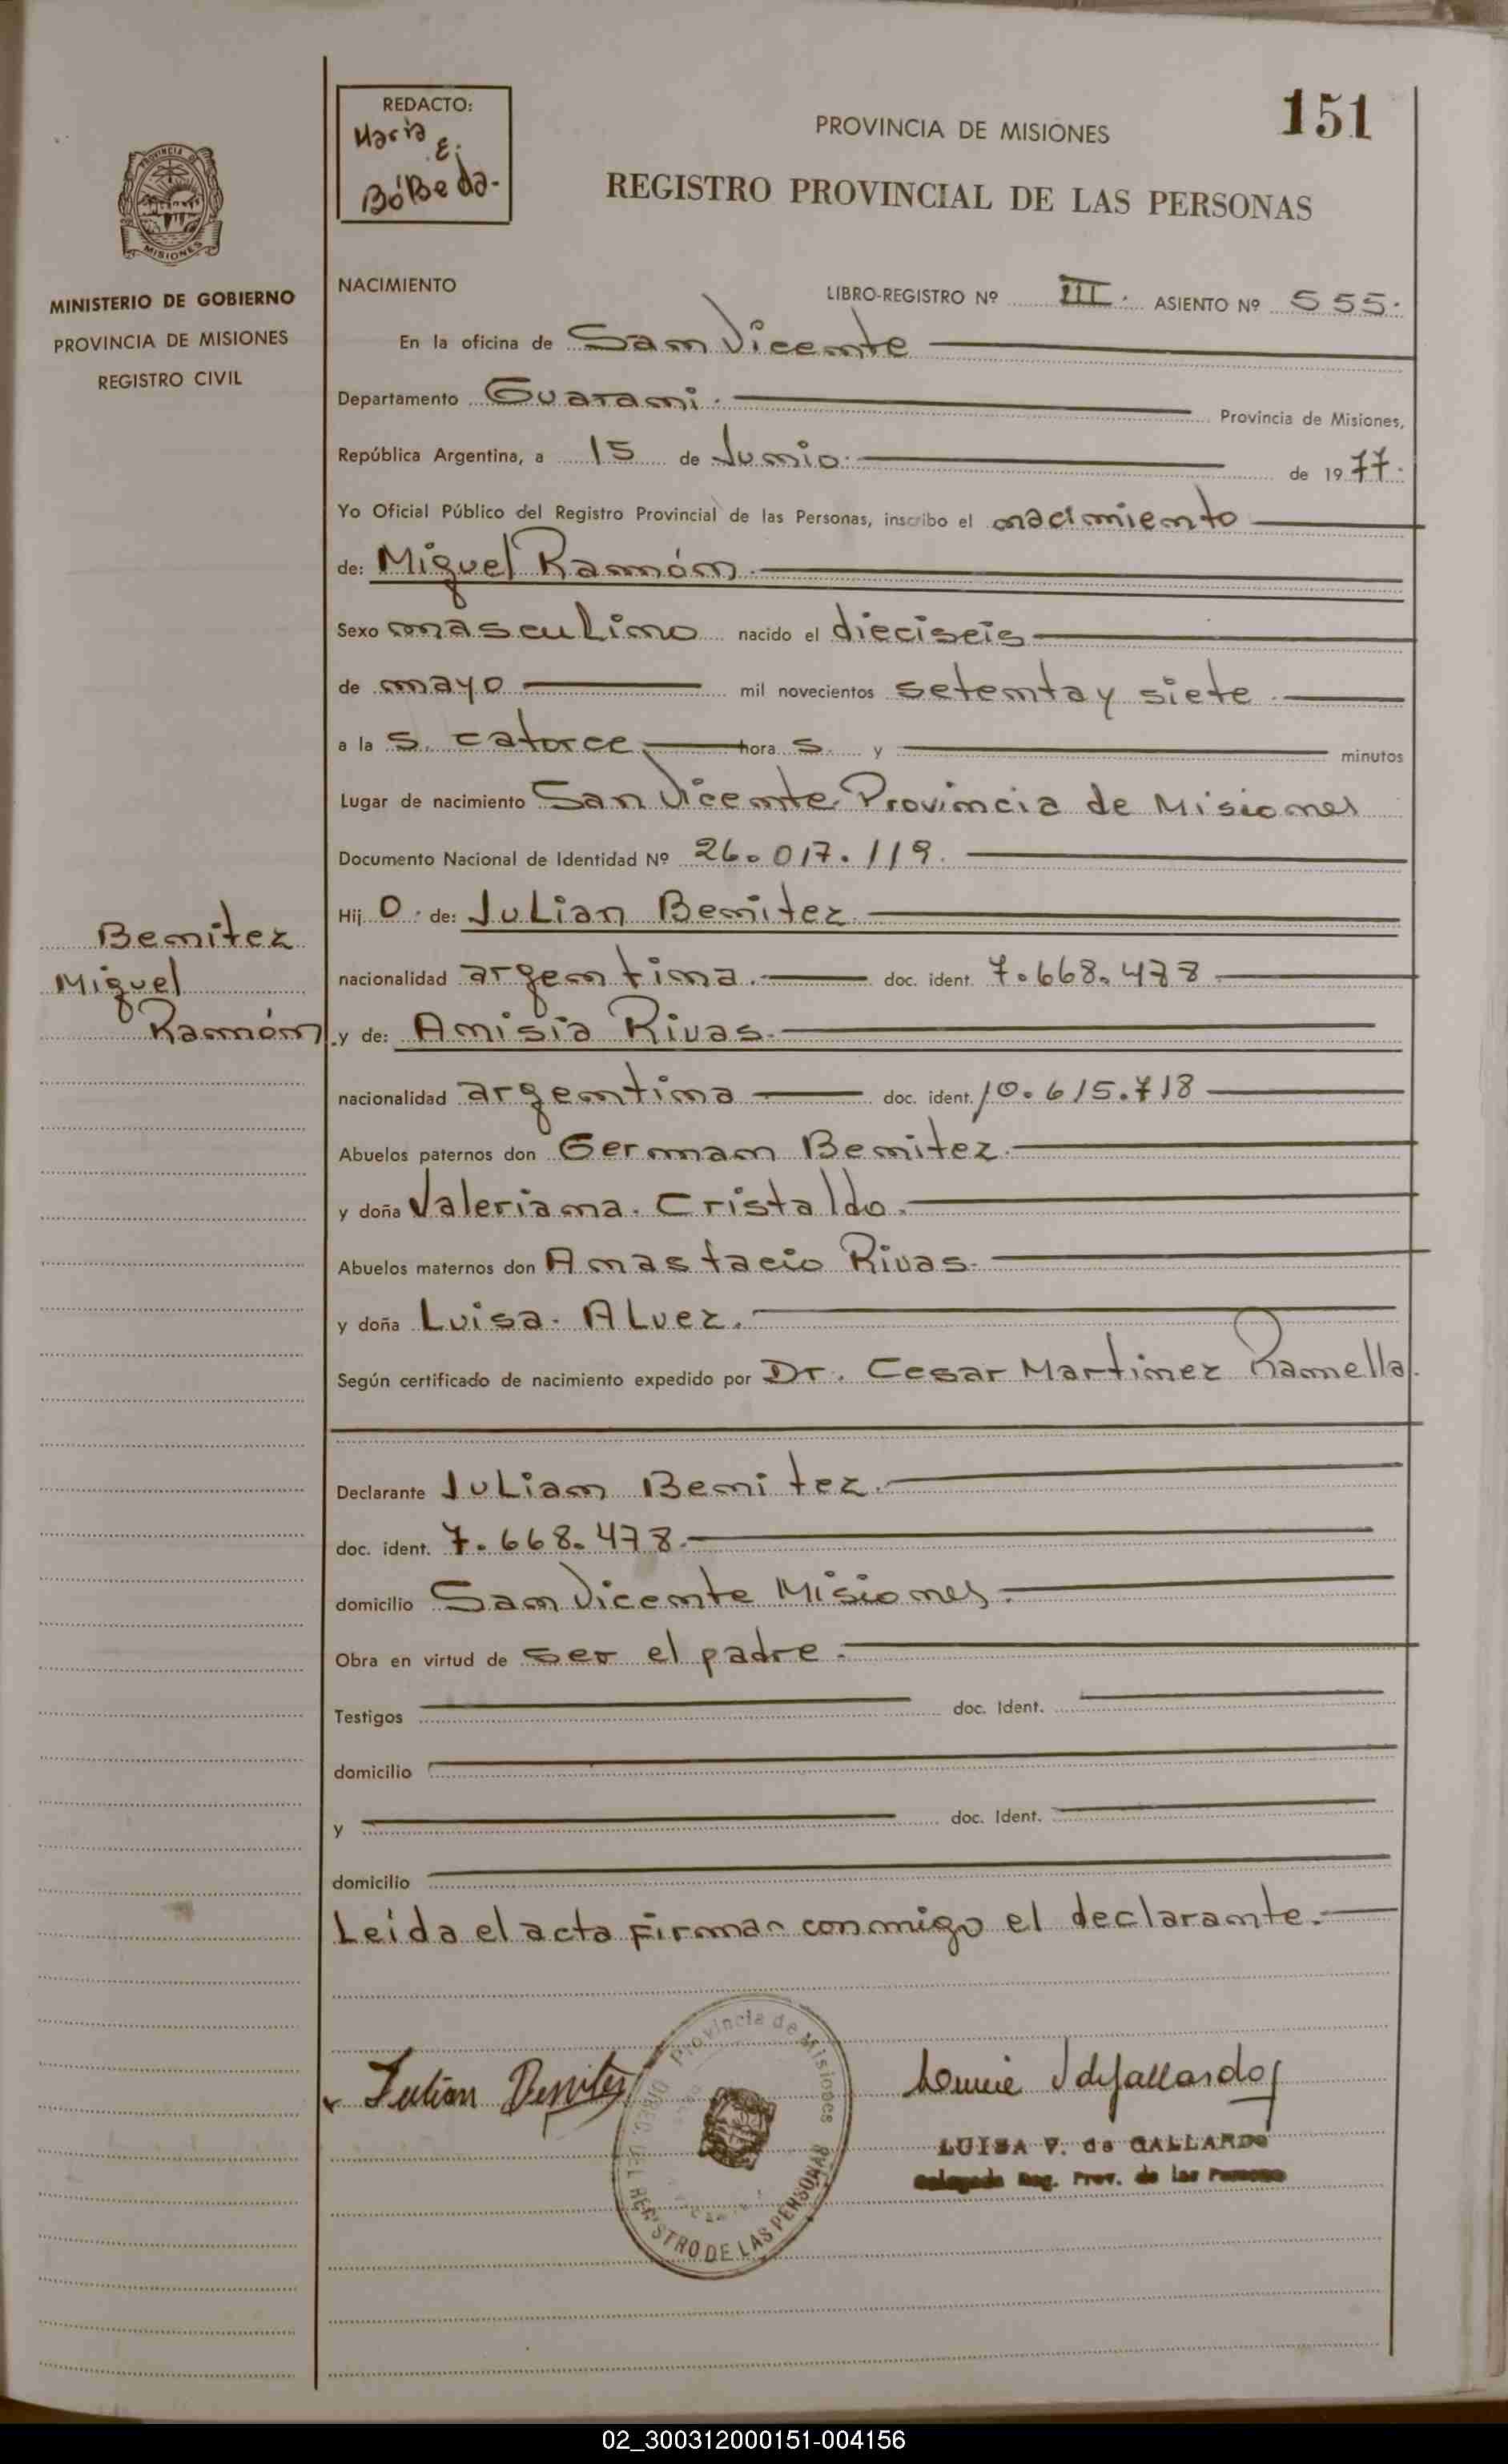 REDACTO:
Maria
E.
BóBeda.
PROVINCIA DE MISIONES
151
REGISTRO PROVINCIAL DE LAS PERSONAS
PROVINCIA DE
MISIONES
MINISTERIO DE GOBIERNO
PROVINCIA DE MISIONES
REGISTRO CIVIL
NACIMIENTO
LIBRO-REGISTRO Nº III. ASIENTO Nº 555.
En la oficina de San Vicente
Departamento Guarani. Provincia de Misiones,
República Argentina, a 15 de Junio. de 1977.
Yo Oficial Público del Registro Provincial de las Personas, inscribo el nacimiento
de: Miguel Ramón.
Sexo masculino nacido el dieciseis
de mayo mil novecientos setenta y siete.
a la s. catorce hora s. y minutos
Lugar de nacimiento San Vicente Provincia de Misiones
Documento Nacional de Identidad Nº 26.017.119.
Hij o. de: Julian Benitez.
nacionalidad argentina. doc. ident. 7.668.478
y de: Anisia Rivas.
nacionalidad argentina doc. ident. 10.615.718
Benitez
Miguel
Ramón
Abuelos paternos don German Benitez.
y doña Valeriana. Cristaldo.
Abuelos maternos don Anastacio Rivas.
y doña Luisa. Alvez.
Según certificado de nacimiento expedido por Dr. Cesar Martinez Ramella.
Declarante Julian Benitez.
doc. ident. 7.668.478.
domicilio San Vicente Misiones.
Obra en virtud de ser el padre.
Testigos doc. Ident.
domicilio
y doc. Ident.
domicilio
Leida el acta firman conmigo el declarante.
Julian Benitez
Provincia de Misiones
DIREC. DEL REGISTRO DE LAS PERSONAS
LUISA V. de GALLARDO
Delegada Reg. Prov. de las Personas
02_300312000151-004156